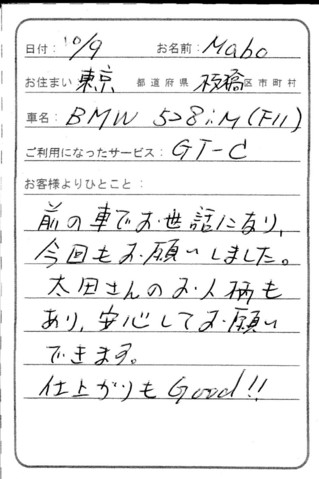 日付：10/9 お名前：Mabo
お住まい 東京 都道府県 板橋 区市町村
車名：BMW 528i.M(F11)
ご利用になったサービス：GT-C
お客様よりひとこと：
前の車でお世話になり、
今回もお願いしました。
太田さんのお人柄も
あり、安心してお願い
できます。
仕上がりもGood!!